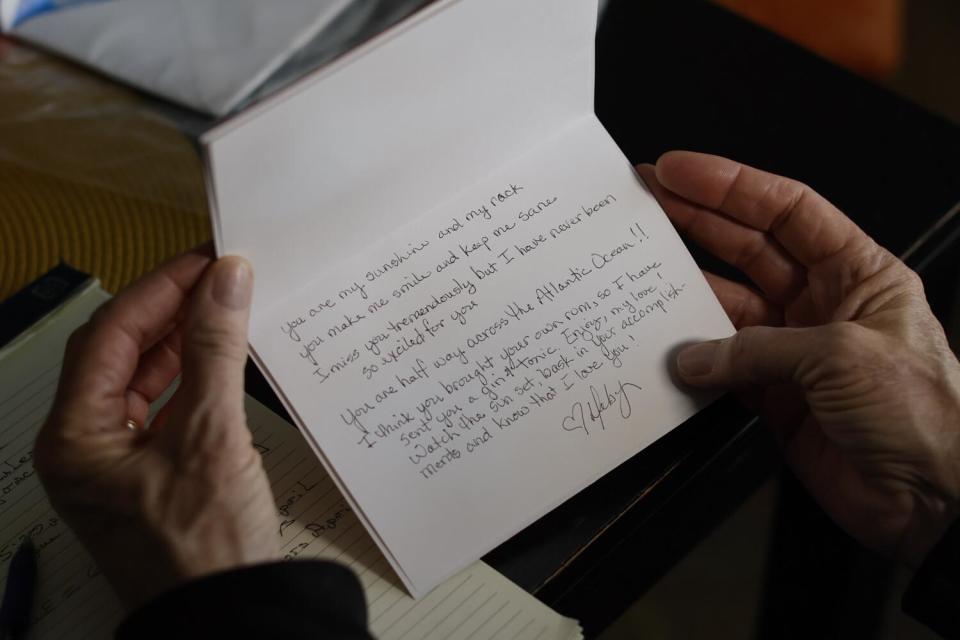 You are my sunshine and my rock
you make me smile and keep me sane
I miss you tremendously but I have never been
so excited for you
You are half way across the Atlantic Ocean!!
I think you brought your own rum, so I have
sent you a gin & Tonic. Enjoy, my love!
Watch the sun set, bask in your accomplish-
ments and know that I love you!
April
April